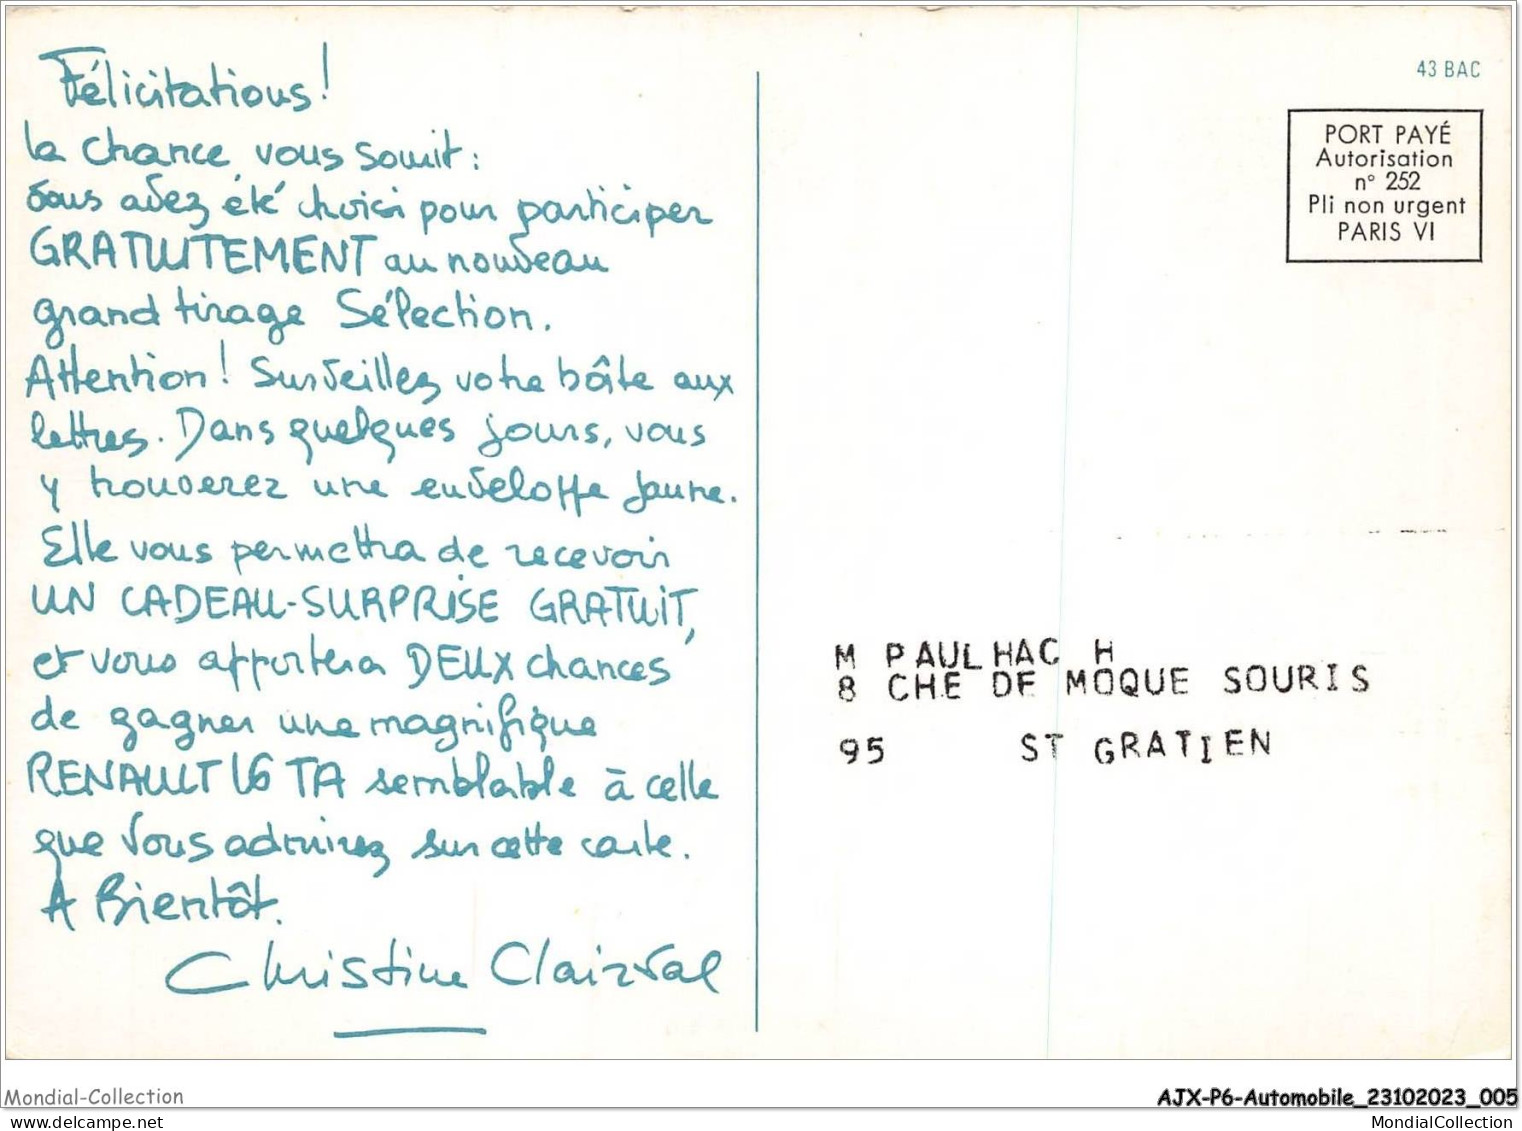 Félicitations!
la chance vous sourit:
Vous avez été choisi pour participer
GRATUITEMENT au nouveau
grand tirage Sélection.
Attention! Surveillez votre boîte aux
lettres. Dans quelques jours, vous
y trouverez une enveloppe jaune.
Elle vous permettra de recevoir
UN CADEAU-SURPRISE GRATUIT,
et vous apportera DEUX chances
de gagner une magnifique
RENAULT 16 TA semblable à celle
que vous admirez sur cette carte.
A Bientôt.
Christine Clairval
43 BAC
PORT PAYÉ
Autorisation
n° 252
Pli non urgent
PARIS VI
M PAULHAC H
8 CHE DE MOQUE SOURIS
95 ST GRATIEN
Mondial-Collection
AJX-P6-Automobile_23102023_005
MondialCollection